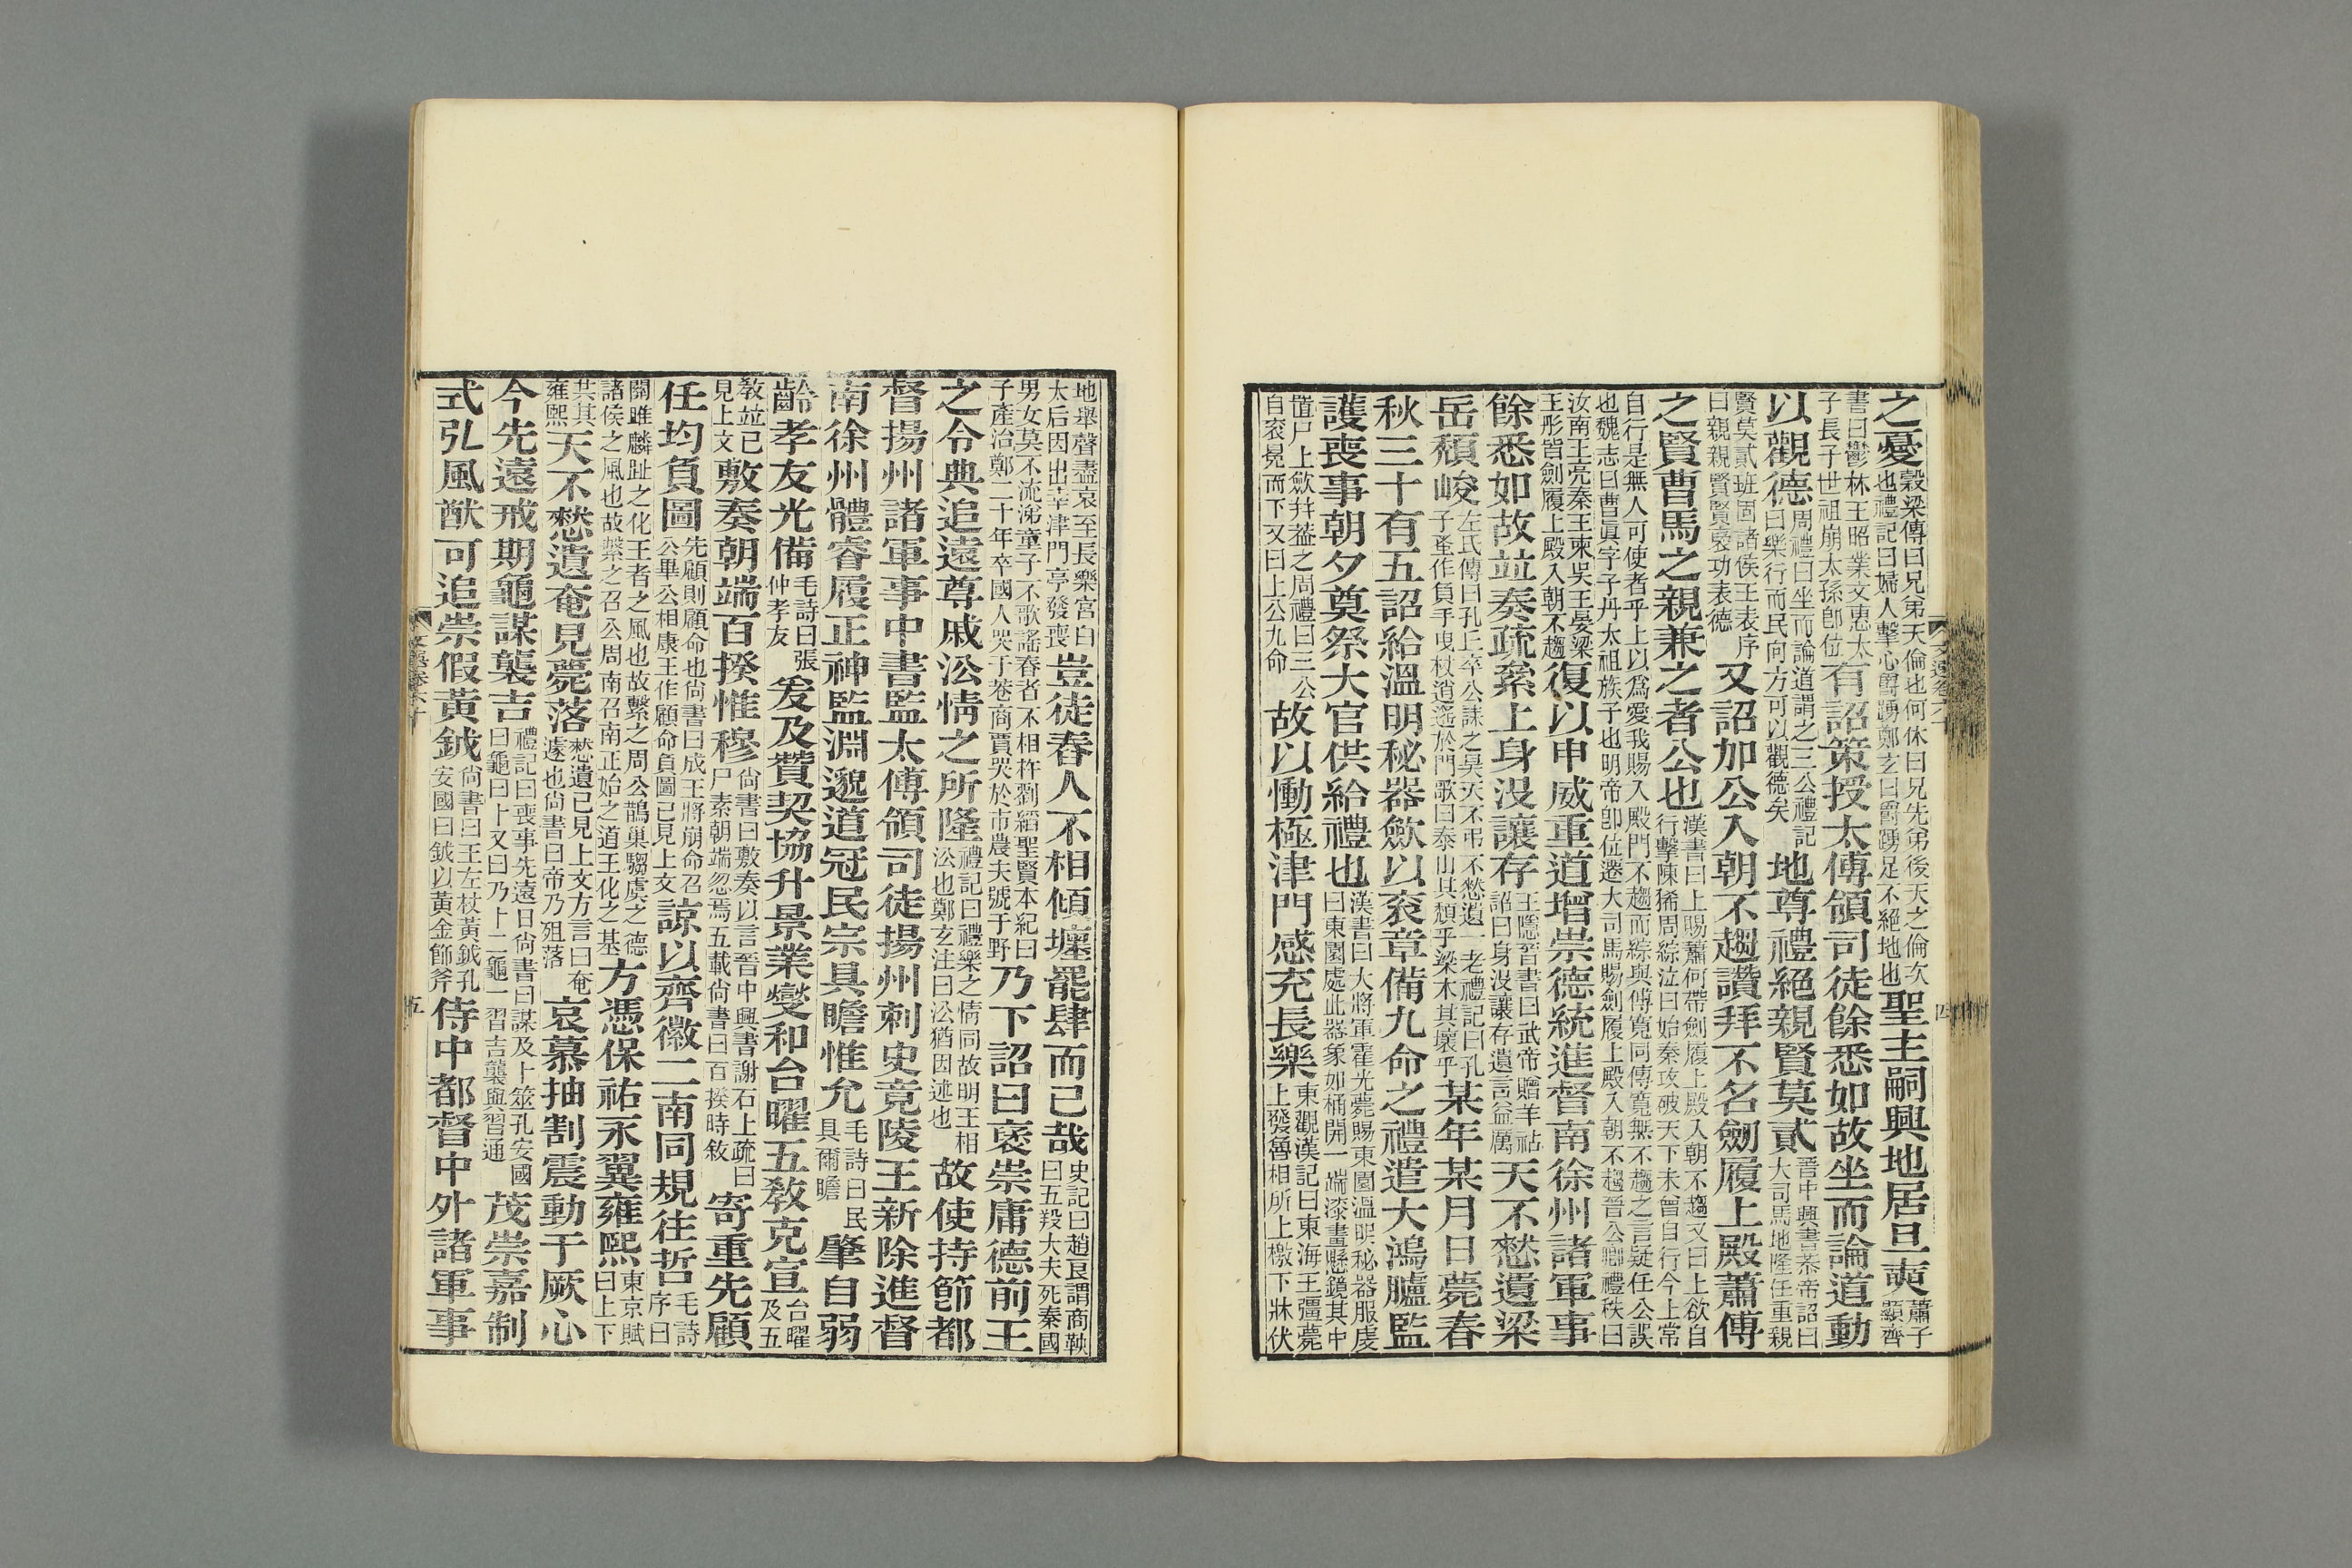 之憂穀梁傳曰兄弟天倫也何休曰兄先弟後天之倫次也禮記曰婦人擊心爵踴鄭玄曰爵踴足不絕地也聖主嗣興地居旦奭蕭子顯齊
書曰鬱林王昭業文惠太子長子世祖崩太孫卽位有詔策授太傅領司徒餘悉如故坐而論道動
以觀德周禮曰坐而論道謂之三公禮記曰樂行而民向方可以觀德矣地尊禮絕親賢莫貳晉中興書恭帝詔曰大司馬地隆任重親
賢莫貳班固諸侯王表序曰親親賢賢襃功表德又詔加公入朝不趨讚拜不名劒履上殿蕭傅
之賢曹馬之親兼之者公也漢書曰上賜蕭何帶劍履上殿入朝不趨又曰上欲自行擊陳狶周緤泣曰始秦攻破天下未曾自行今上常
自行是無人可使者乎上以爲愛我賜入殿門不趨而緤與傅寬同傳寬無不趨之言疑任公誤也魏志曰曹眞字子丹太祖族子也明帝卽位遷大司馬賜劍履上殿入朝不趨晉公卿禮秩曰
汝南王亮秦王柬吳王晏梁王肜皆劍履上殿入朝不趨復以申威重道增崇德統進督南徐州諸軍事
餘悉如故竝奏疏絫上身沒讓存王隱晉書曰武帝贈羊祜詔曰身沒讓存遺言益厲天不憖遺梁
岳頹峻左氏傳曰孔丘卒公誄之昊天不弔不憖遺一老禮記曰孔子蚤作負手曳杖逍遙於門歌曰泰山其頹乎梁木其壞乎某年某月日薨春
秋三十有五詔給溫明秘器斂以衮章備九命之禮遣大鴻臚監
護喪事朝夕奠祭大官供給禮也漢書曰大將軍霍光薨賜東園溫明秘器服虔曰東園處此器象如桶開一端漆畫懸鏡其中
置尸上斂幷葢之周禮曰三公自衮冕而下又曰上公九命故以慟極津門感充長樂東觀漢記曰東海王彊薨上發魯相所上檄下牀伏
地舉聲盡哀至長樂宮白太后因出幸津門亭發喪豈徒舂人不相傾壥罷肆而已哉史記曰趙良謂商鞅曰五羖大夫死秦國
男女莫不流涕童子不歌謠舂者不相杵劉縚聖賢本紀曰子產治鄭二十年卒國人哭于巷商賈哭於市農夫號于野乃下詔曰襃崇庸德前王
之令典追遠尊戚㳂情之所隆禮記曰禮樂之情同故明王相㳂也鄭玄注曰㳂猶因述也故使持節都
督揚州諸軍事中書監太傅領司徒揚州刺史竟陵王新除進督
南徐州體睿履正神監淵邈道冠民宗具瞻惟允毛詩曰民具爾瞻肇自弱
齡孝友光備毛詩曰張仲孝友爰及贊契協升景業燮和台曜五敎克宣台曜及五
敎竝已見上文敷奏朝端百揆惟穆尙書曰敷奏以言晉中興書謝石上疏曰尸素朝端忽焉五載尙書曰百揆時敘寄重先顧
任均負圖先顧則顧命也尙書曰成王將崩命召公畢公相康王作顧命負圖已見上文諒以齊徽二南同規往哲毛詩序曰
關雎麟趾之化王者之風也故繫之周公鵲巢騶虞之德諸侯之風也故繫之召公周南召南正始之道王化之基方憑保祐永翼雍熙東京賦曰上下
共其雍熙天不憖遺奄見薨落憖遺已見上文方言曰奄遽也尙書曰帝乃殂落哀慕抽割震動于厥心
今先遠戒期龜謀襲吉禮記曰喪事先遠日尙書曰謀及卜筮孔安國曰龜曰卜又曰乃卜二龜一習吉襲與習通茂崇嘉制
式弘風猷可追崇假黃鉞尙書曰王左杖黃鉞孔安國曰鉞以黃金飾斧侍中都督中外諸軍事